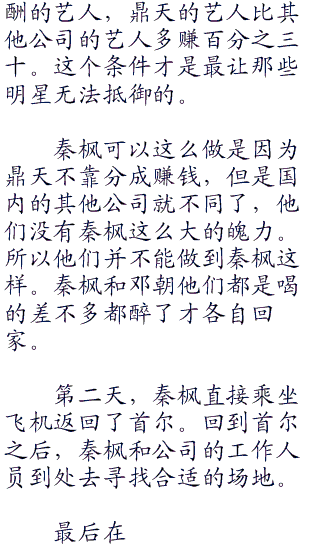 酬的艺人，鼎天的艺人比其
他公司的艺人多赚百分之三
十。这个条件才是最让那些
明星无法抵御的。
秦枫可以这么做是因为
鼎天不靠分成赚钱，但是国
内的其他公司就不同了，他
们没有秦枫这么大的魄力。
所以他们并不能做到秦枫这
样。秦枫和邓朝他们都是喝
的差不多都醉了才各自回
家。
第二天，秦枫直接乘坐
飞机返回了首尔。回到首尔
之后，秦枫和公司的工作人
员到处去寻找合适的场地。
最后在